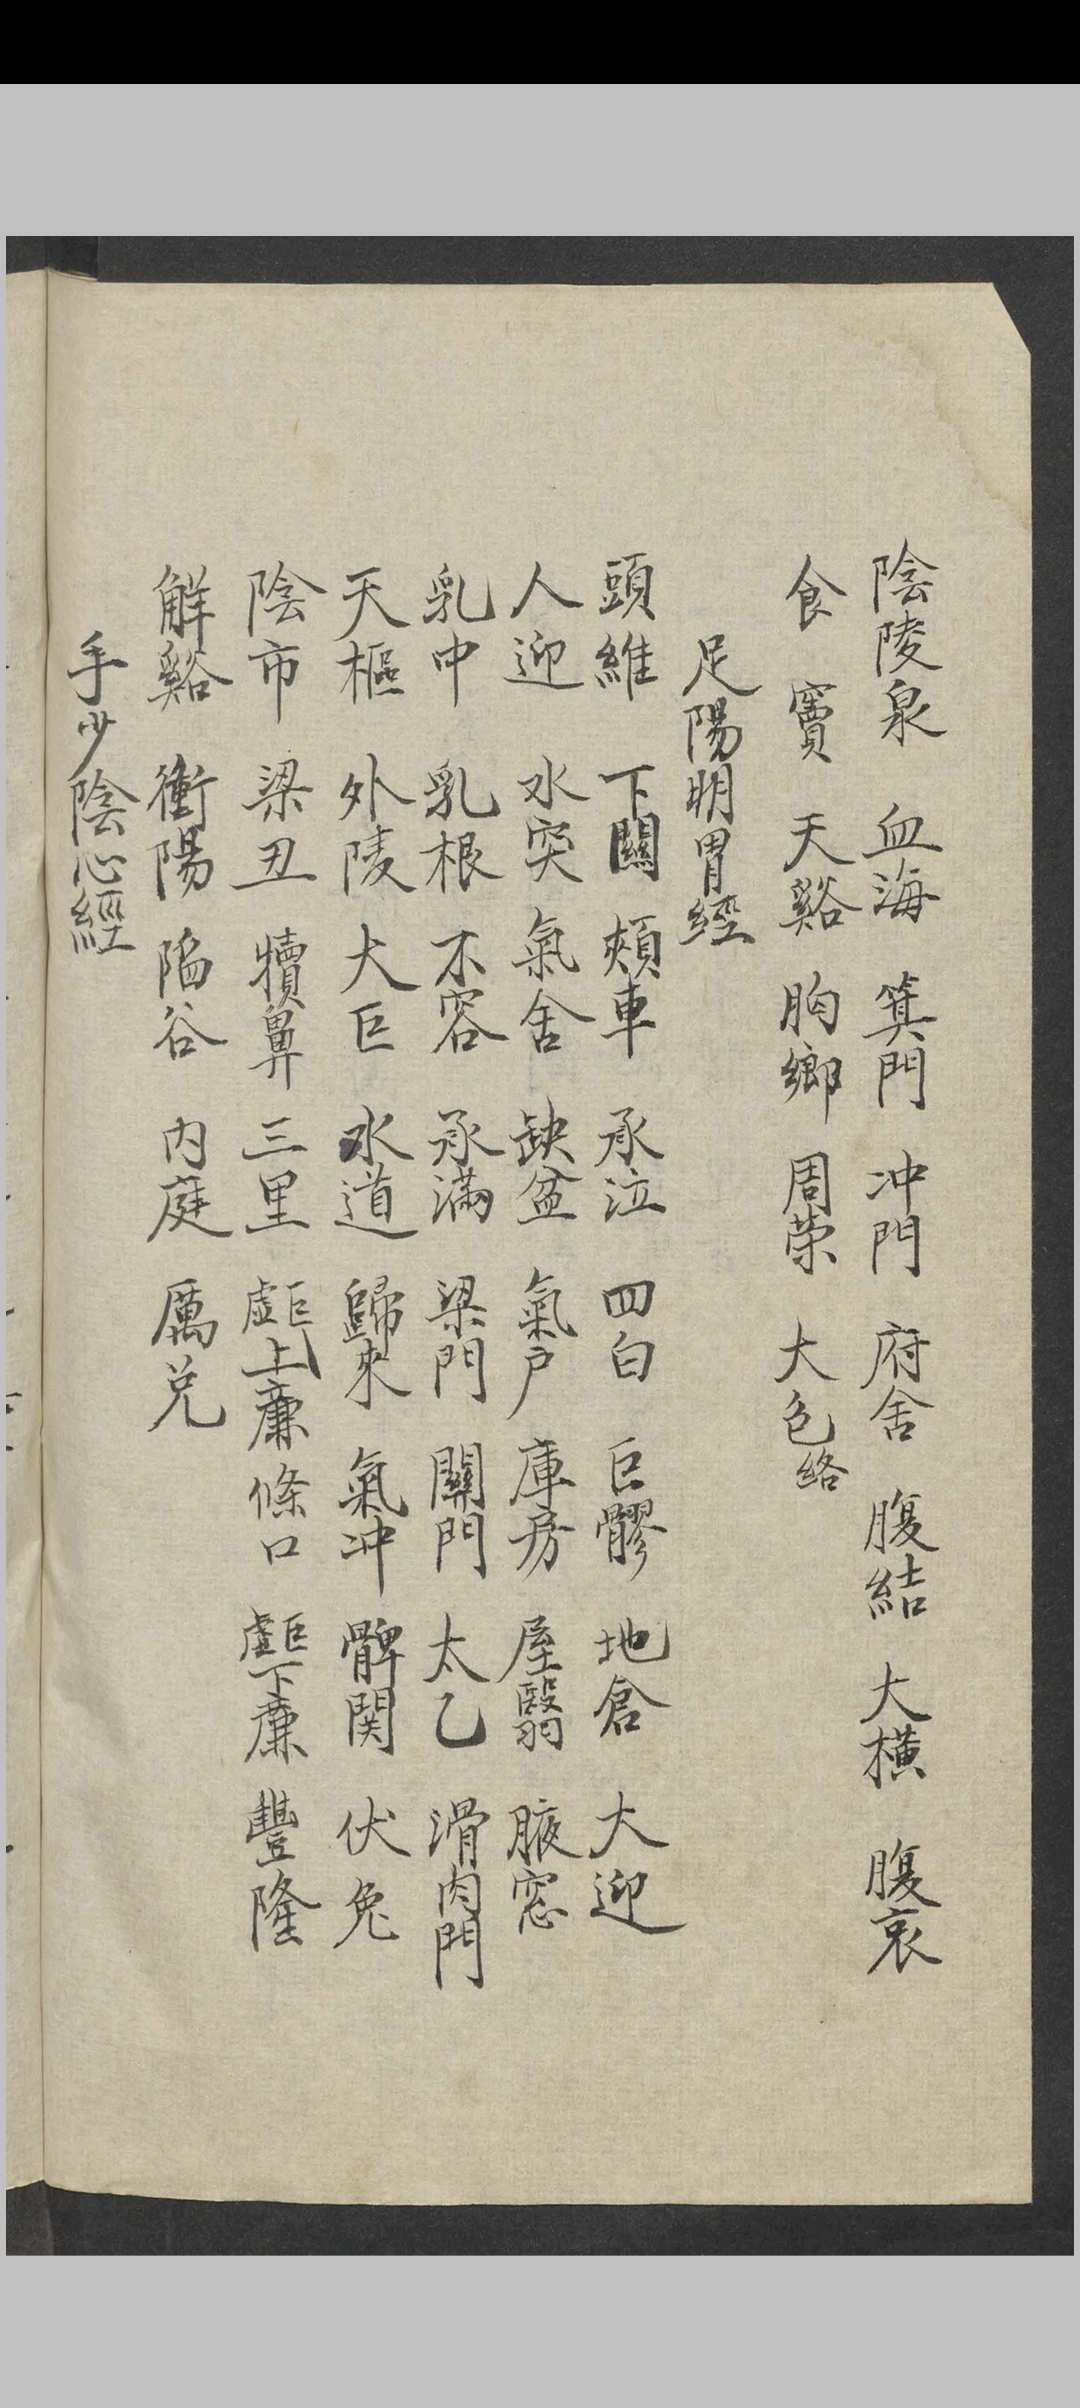 陰陵泉 血海 箕門 冲門 府舍 腹結 大橫 腹哀
食竇 天谿 胸鄉 周荣 大包絡
足陽明胃經
頭維 下關 頰車 承泣 四白 巨髎 地倉 大迎
人迎 水突 氣舍 缺盆 氣户 庫房 屋翳 腋窓
乳中 乳根 不容 承滿 梁門 關門 太乙 滑肉門
天樞 外陵 大巨 水道 歸來 氣冲 髀関 伏兔
陰市 梁丑 犢鼻 三里 巨虚上廉 條口 巨虚下廉 豐隆
解谿 衝陽 陷谷 内庭 厲兑
手少陰心經